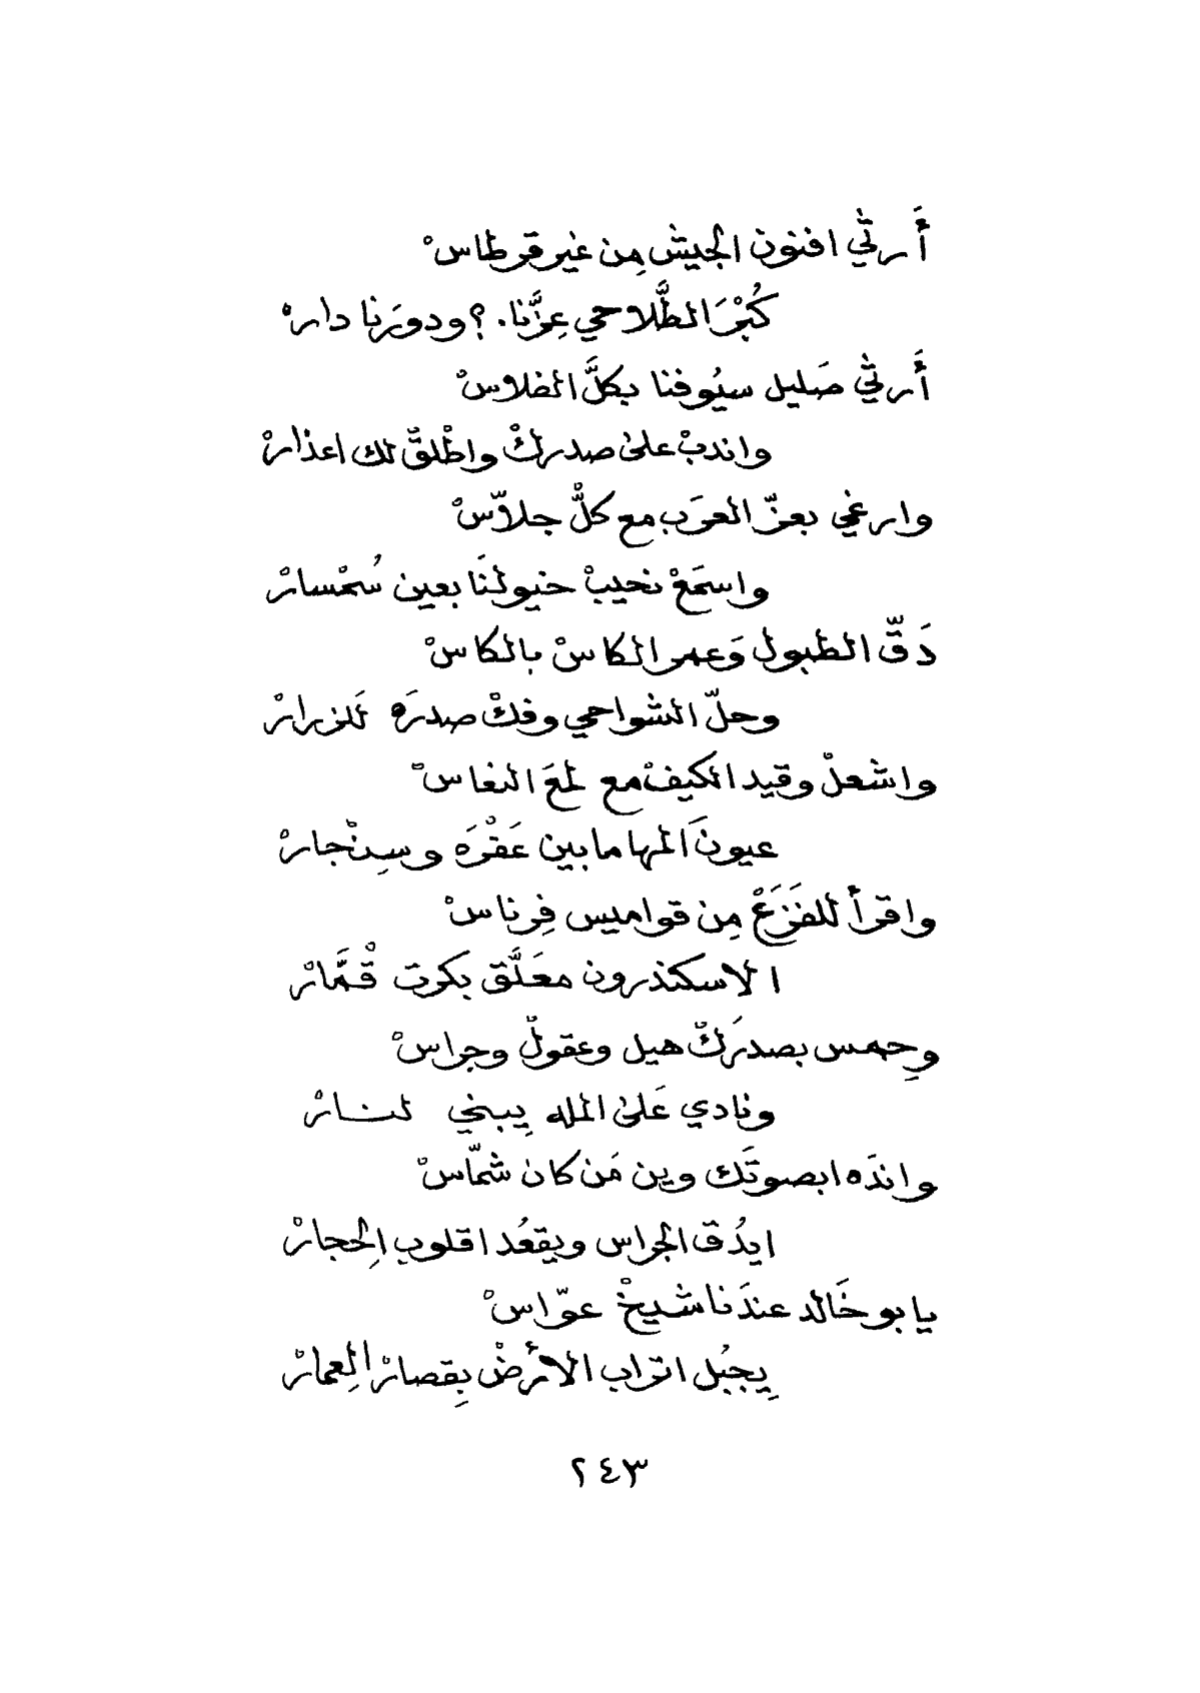 أَرثي افنون الجيش مِن غير قرطاسْ
كُبْرَ الطَّلاحي عِزَّنا. ؟ ودورَنا دارهْ
أَرثي صَليل سيُوفنا بكلَّ الفلاسْ
واندبْ على صدركْ واطْلقْ لك اعذارْ
وارغي بعزّ العرَب مع كلْ جلاّسْ
واسمَعْ نحيبْ خيولنَا بعين سُمْسارْ
دَقّ الطبول وَعمر الكاسْ بالكاسْ
وحلّ الشواحي وفكْ صدرَه لَلزرارْ
واشعلْ وقيد الكيفْ مع لمعَ النعاسْ
عيونَ المها مابين عَقْرَه وسِنْجارْ
واقرأ للفَزَعْ مِن قواميس فِرناسْ
الاسكندرون معَلَّق بكرت قْمَّارْ
وحِمس بصدرَكْ هيل وعقولْ وجراسْ
ونادي عَلىٰ المله يِبني لنارْ
واندَه ابصوتَك وين مَن كان شمّاسْ
ايدُق الجراس ويقعُد اقلوب الِحجارْ
يابو خَالد عندَنا شيخْ عوّاسْ
يِجبُل اتراب الأرضْ بِقصارْ الِعمارْ
٢٤٣